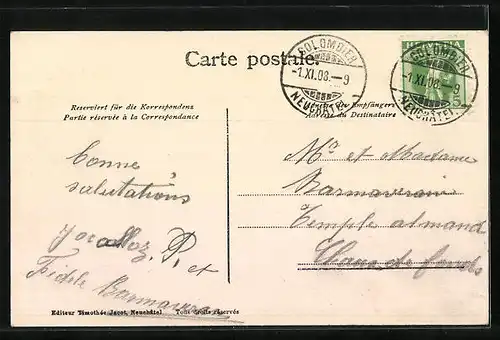 Carte postale.
COLOMBIER
-1.XI.08.-9
NEUCHÂTEL
COLOMBIER
-1.XI.08.-9
NEUCHÂTEL
HELVETIA
5
Reserviert für die Korrespondenz
Partie réservée à la Correspondance
des Empfängers
Adresse du Destinataire
Bonne
salutations
P. et
Mr et Madame
Temple almand
Chaux de fonds
Editeur Timothée Jacot, Neuchâtel Tous droits réservés